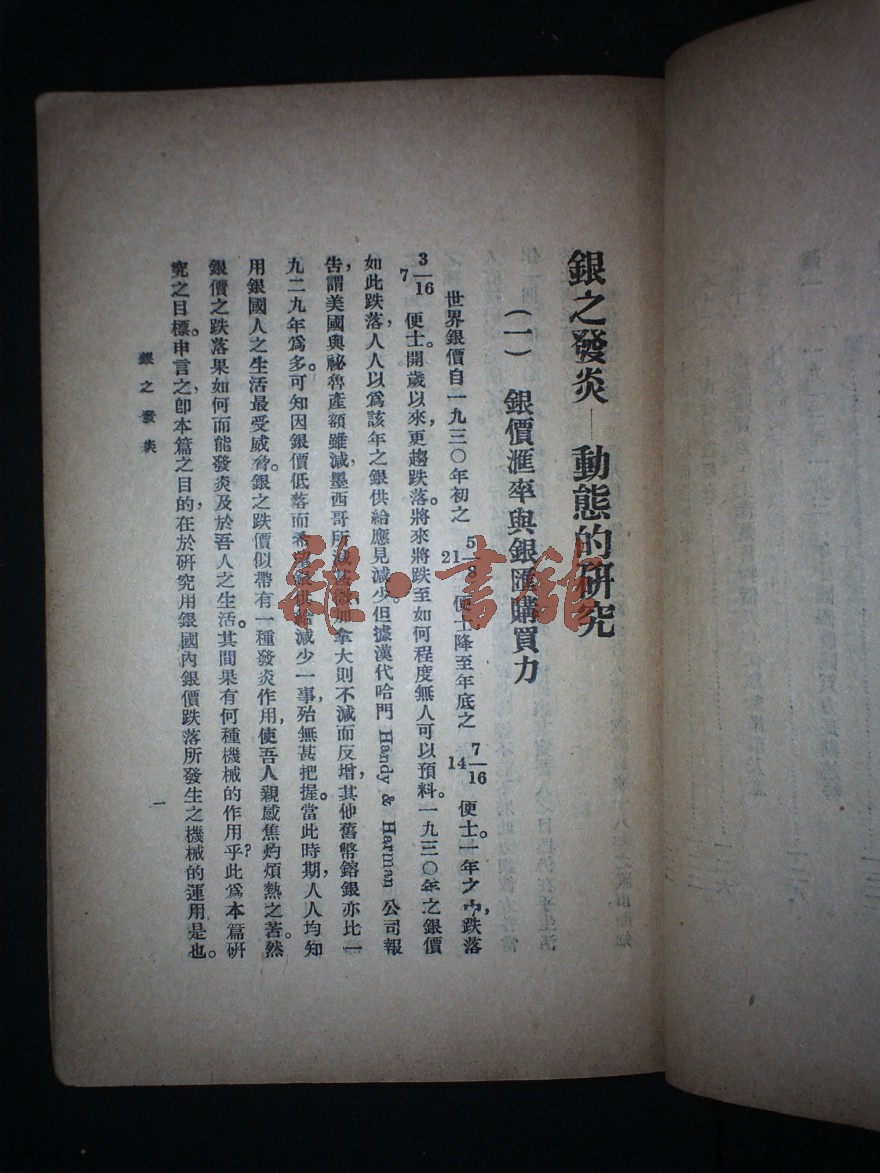 銀之發炎——動態的研究
（一）　銀價滙率與銀匯購買力
世界銀價自一九三〇年初之 21 5/8 便士降至年底之 14 7/16 便士。一年之中，跌落
7 3/16 便士。開歲以來，更趨跌落。將來將跌至如何程度無人可以預料。一九三〇年之銀價
如此跌落，人人以爲該年之銀供給應見減少。但據漢代哈門 Handy & Harman 公司報
告，謂美國與祕魯產額雖減，墨西哥所減甚微，加拿大則不減而反增，其他舊幣鎔銀亦比一
九二九年爲多。可知因銀價低落而希望銀供給減少一事，殆無甚把握。當此時期，人人均知
用銀國人之生活最受威脅。銀之跌價似帶有一種發炎作用，使吾人親感焦灼煩熱之苦。然
銀價之跌落果如何而能發炎及於吾人之生活。其間果有何種機械的作用乎？此爲本篇硏
究之目標。申言之，卽本篇之目的，在於硏究用銀國內銀價跌落所發生之機械的運用是也。
銀之發炎
一
雜·書館